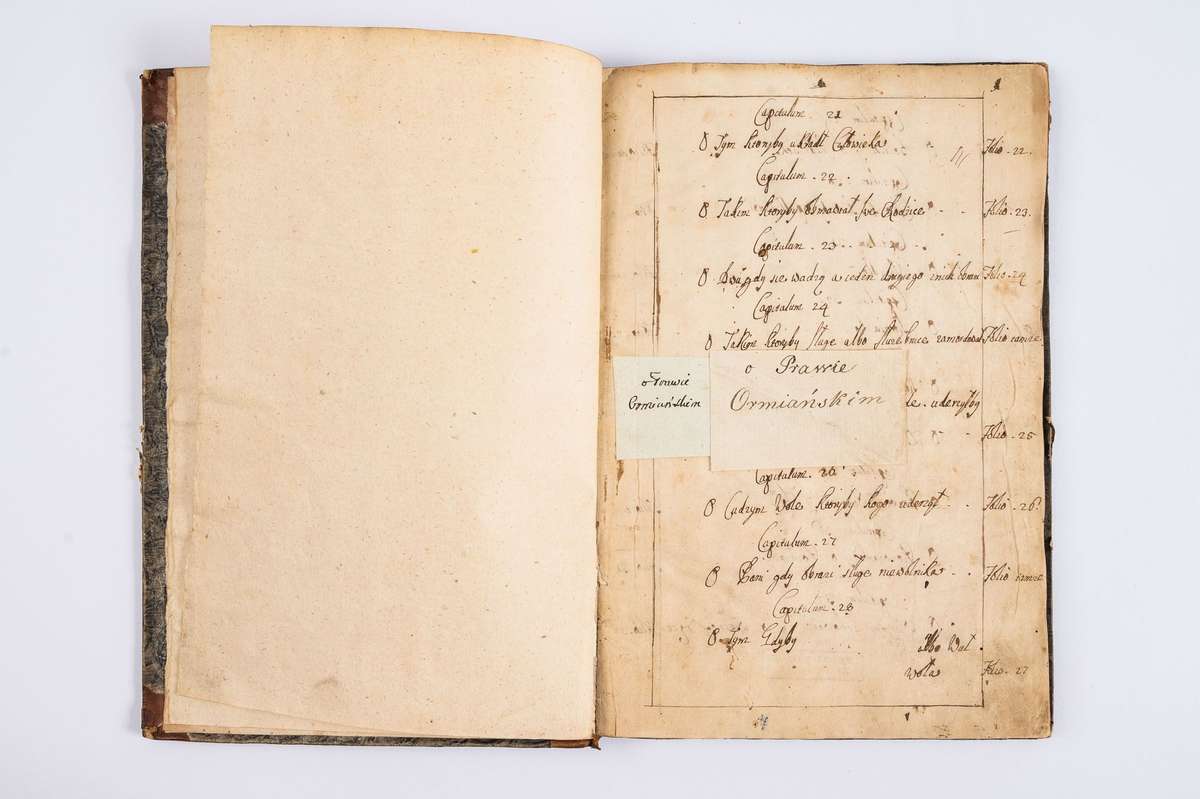 Capitulum 21
O Tym ktoryby ukradł Człowieka Folio 22.
Capitulum . 22 .
O Takim ktoryby swe Rodzice Folio . 23.
Capitulum . 23
O gdy sie wadzą a ieden drugiego Folio . 24
Capitulum 24
O Takim ktoryby sługę albo Folio
o Prawie
Ormiańskim
o Prawie
Ormiańskim
uderzyłby
Folio . 25
Capitulum . 26
O Cudzym Wole ktoryby kogo uderzył . . Folio . 26
Capitulum . 27
O gdy sługe niewolnika . . Folio
Capitulum . 28
O Tym Gdyby albo Wol
Wola Folio . 27